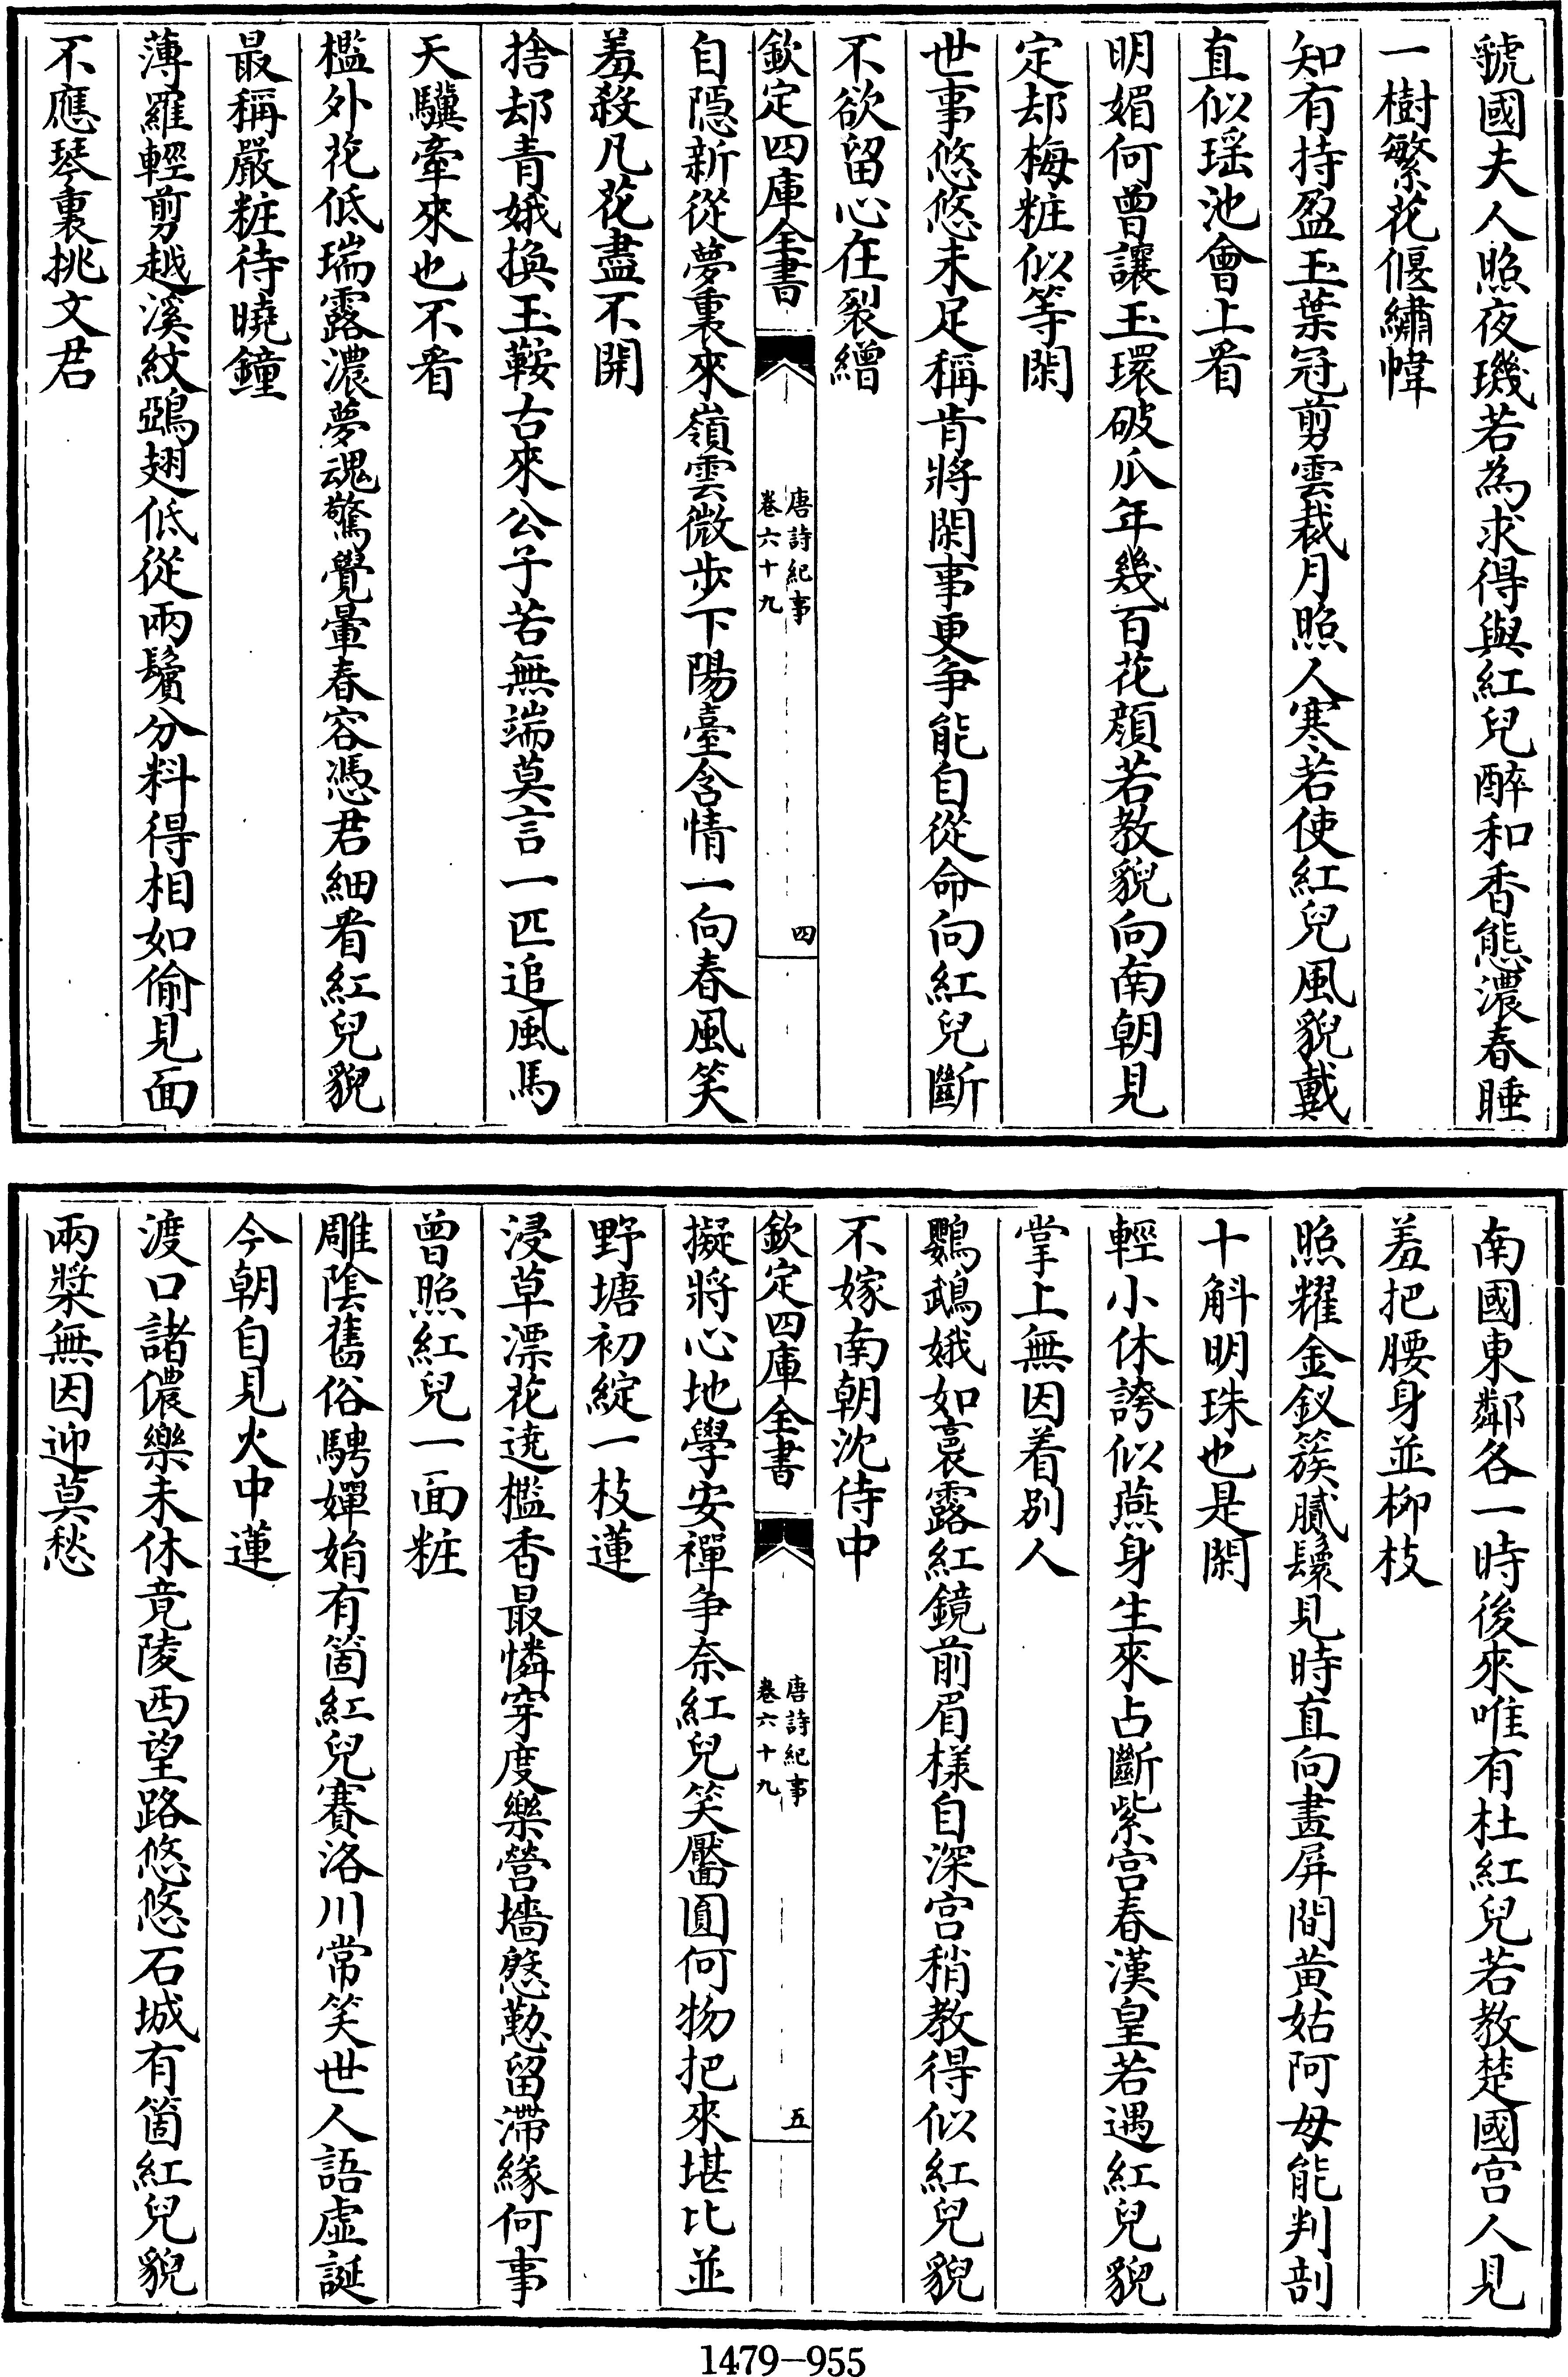 虢國夫人照夜璣若為求得與紅兒醉和香態濃春睡
一樹繁花偃繡幃
知有持盈玉葉冠剪雲裁月照人寒若使紅兒風貌戴
直似瑶池會上看
明媚何曾讓玉環破瓜年幾百花顔若教貌向南朝見
定却梅粧似等閑
世事悠悠未足稱肯將閑事更争能自從命向紅兒斷
不欲留心在裂繒
欽定四庫全書
唐詩紀事
卷六十九
四
自隱新從夢裏來嶺雲微步下陽臺含情一向春風笑
羞殺凡花盡不開
捨却青娥換玉鞍古來公子苦無端莫言一匹追風馬
天驥牽來也不看
檻外花低瑞露濃夢魂驚覺暈春容憑君細看紅兒貌
最稱嚴粧待曉鐘
薄羅輕剪越溪紋鵶翅低從兩鬢分料得相如偷見面
不應琴裏挑文君
南國東鄰各一時後來唯有杜紅兒若教楚國宫人見
羞把腰身並柳枝
照耀金釵簇膩鬟見時直向畫屏間黄姑阿母能判剖
十斛明珠也是閑
輕小休誇似燕身生來占斷紫宫春漢皇若遇紅兒貌
掌上無因着別人
鸚鵡娥如裛露紅鏡前眉樣自深宫稍教得似紅兒貌
不嫁南朝沈侍中
欽定四庫全書
唐詩紀事
卷六十九
五
擬將心地學安禪争奈紅兒笑靨圓何物把來堪比並
野塘初綻一枝蓮
浸草漂花遶檻香最憐穿度樂營墻慇懃留滯緣何事
曾照紅兒一面粧
雕陰舊俗騁嬋娟有箇紅兒賽洛川常笑世人語虛誕
今朝自見火中蓮
渡口諸儂樂未休竟陵西望路悠悠石城有箇紅兒貌
兩槳無因迎莫愁
1479-955